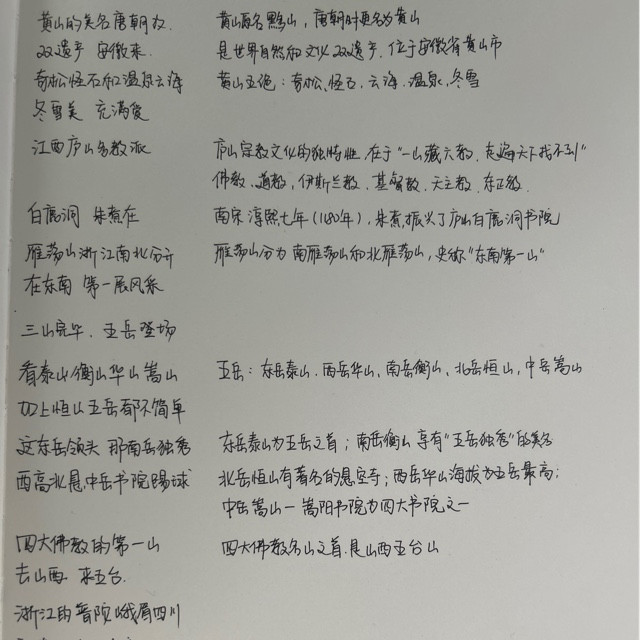 黄山的美名唐朝友. 黄山原名黟山，唐朝时更名为黄山
双遗产 安徽来. 是世界自然和文化双遗产，位于安徽省黄山市
奇松怪石和温泉云海 黄山五绝：奇松、怪石、云海、温泉、冬雪
冬雪美 充满爱
江西庐山多教派 庐山宗教文化的独特性在于“一山藏六教，走遍天下找不到”
佛教、道教，伊斯兰教、基督教、天主教、东正教.
白鹿洞 朱熹在 南宋淳熙七年(1180年)，朱熹振兴了庐山白鹿洞书院
雁荡山浙江南北分开 雁荡山分为南雁荡山和北雁荡山，史称“东南第一山”
在东南 第一展风采
三山完毕. 五岳登场
看泰山衡山华山嵩山 五岳：东岳泰山、西岳华山、南岳衡山、北岳恒山，中岳嵩山
加上恒山五岳都不简单
这东岳领头 那南岳独秀 东岳泰山为五岳之首；南岳衡山享有“五岳独秀”的美名
西高北悬，中岳书院踢球 北岳恒山有著名的悬空寺；西岳华山海拔为五岳最高；
中岳嵩山一嵩阳书院为四大书院之一
四大佛教的第一山 四大佛教名山之首是山西五台山
去山西 来五台.
浙江的普陀 峨眉四川